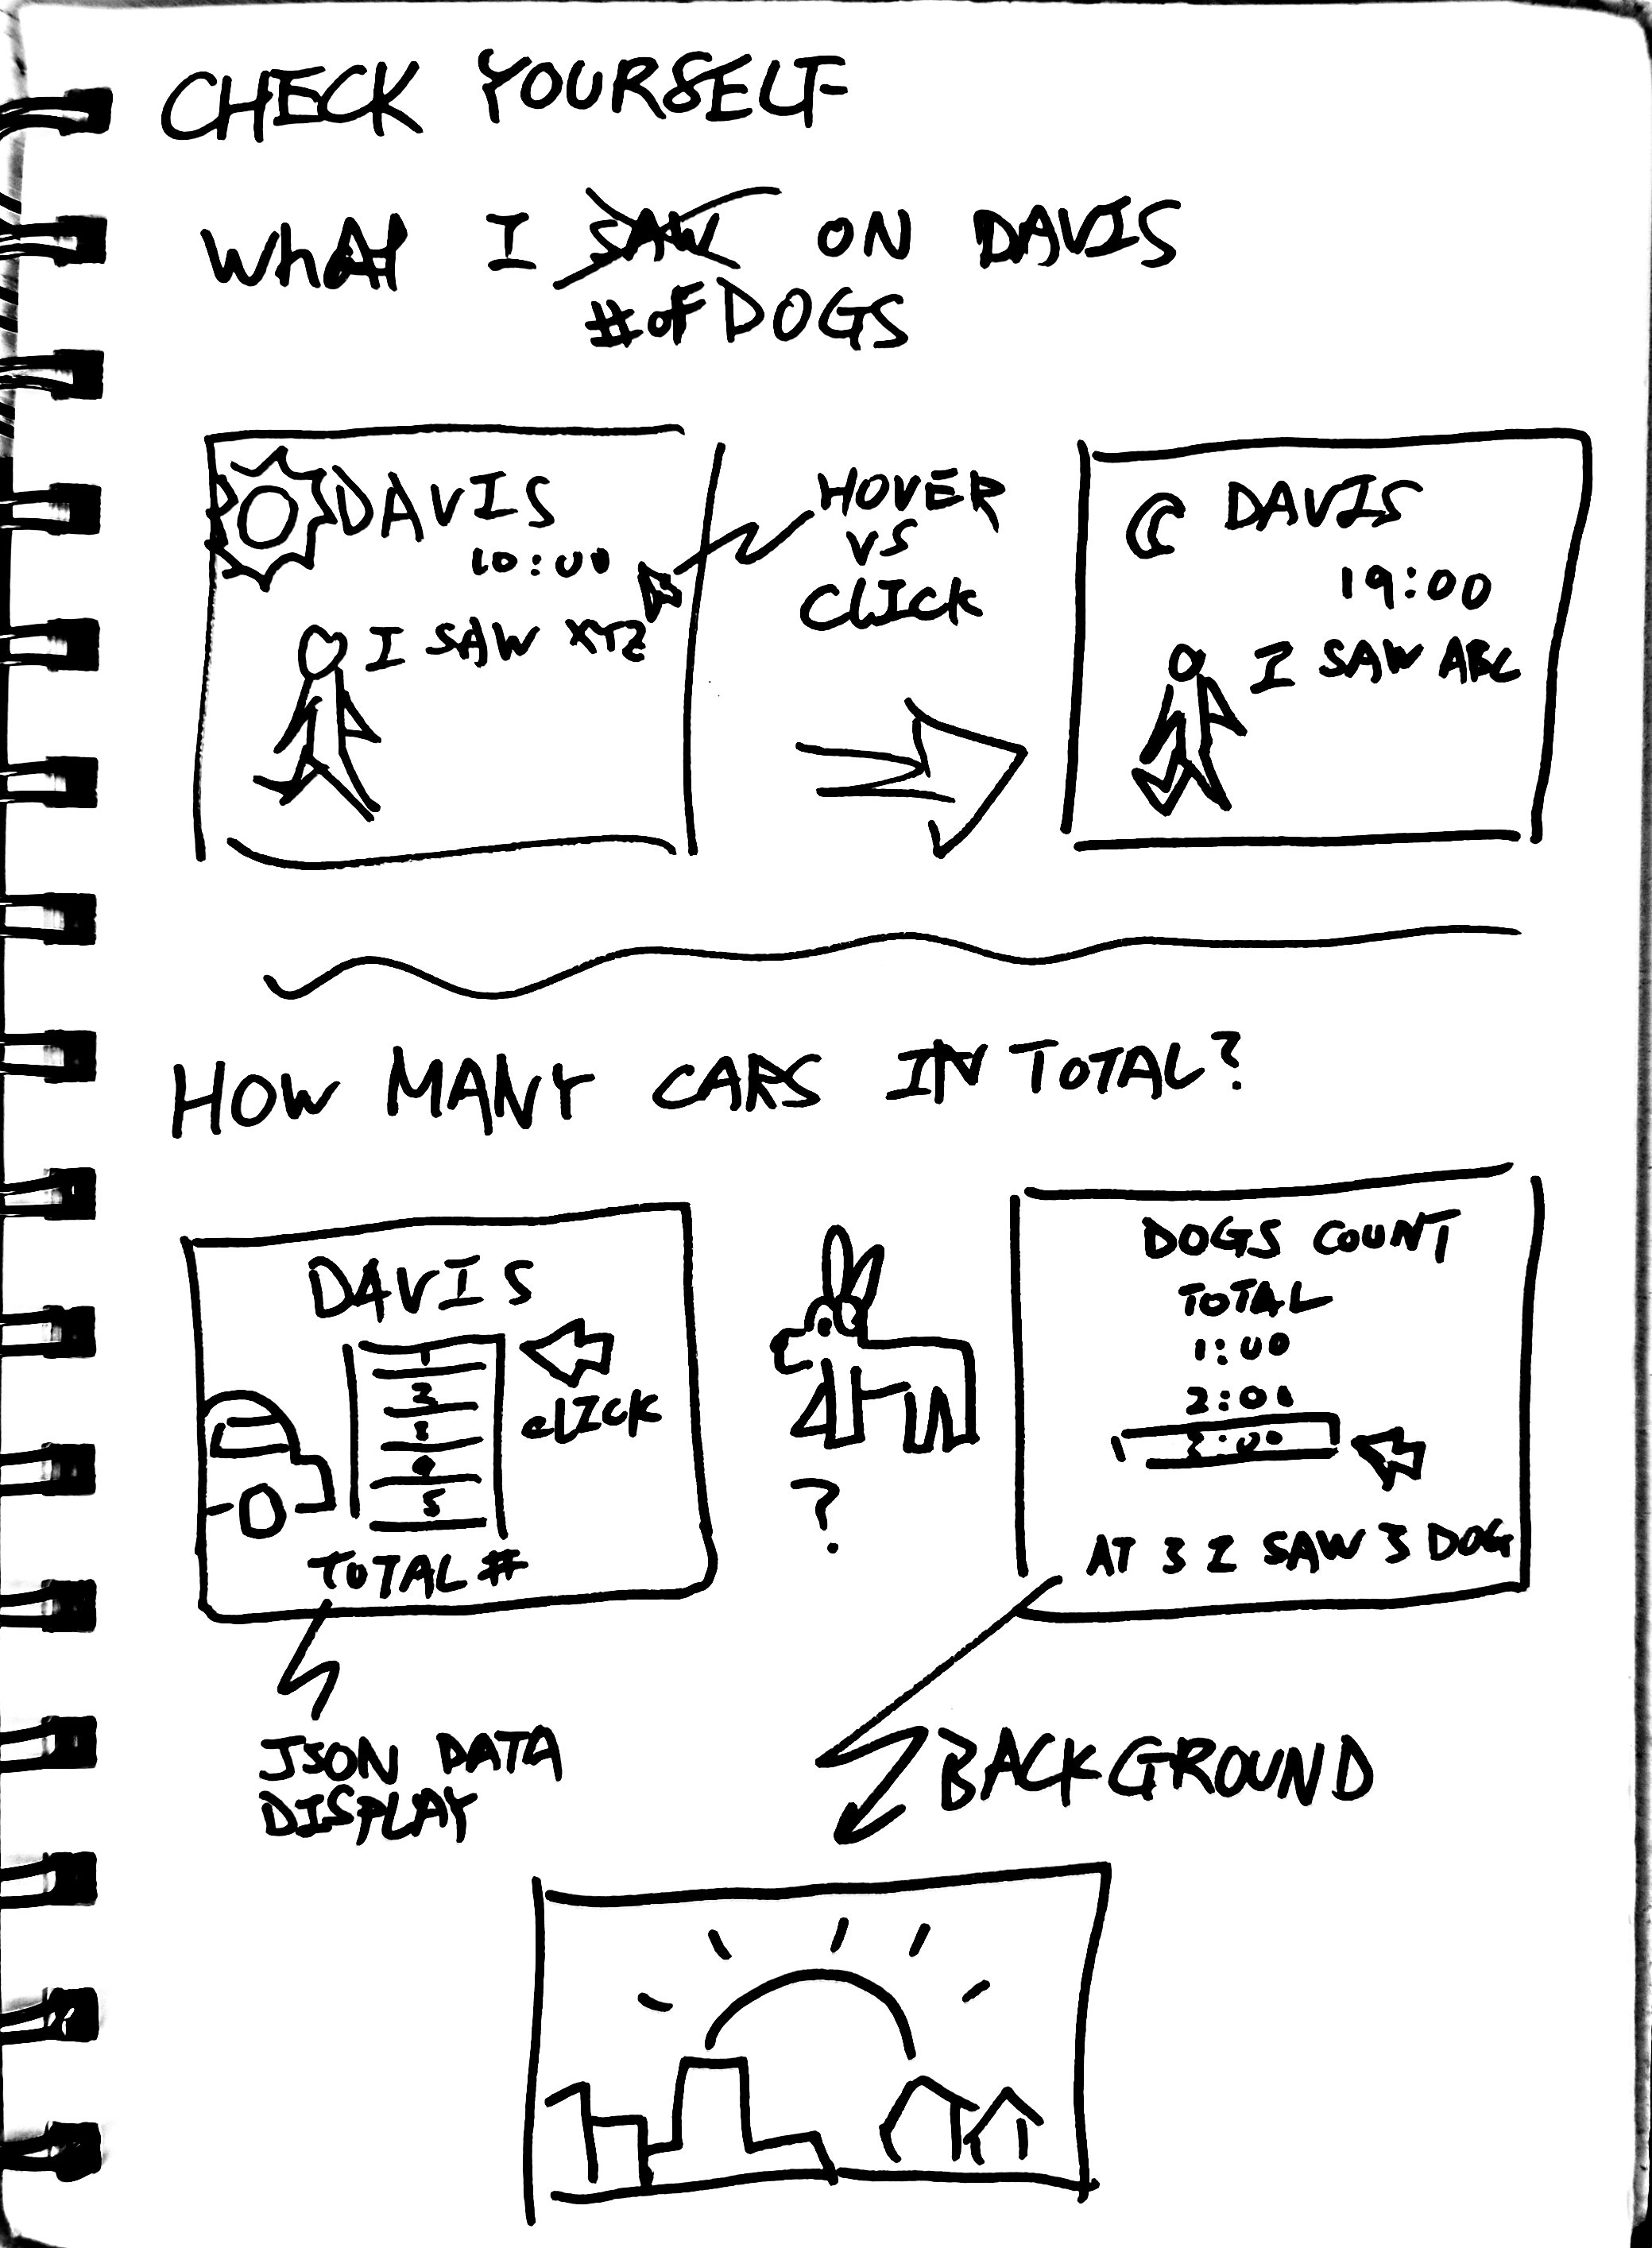 CHECK YOURSELF
WHAT I SAW ON DAVIS
# OF DOGS
DAVIS
10:00
I SAW XYZ
HOVER
VS
CLICK
DAVIS
19:00
I SAW ABC
HOW MANY CARS IN TOTAL?
DAVIS
1
2
3
4
5
CLICK
TOTAL #
?
DOGS COUNT
TOTAL
1:00
2:00
3:00
AT 3 I SAW 3 DOG
JSON DATA
DISPLAY
BACKGROUND